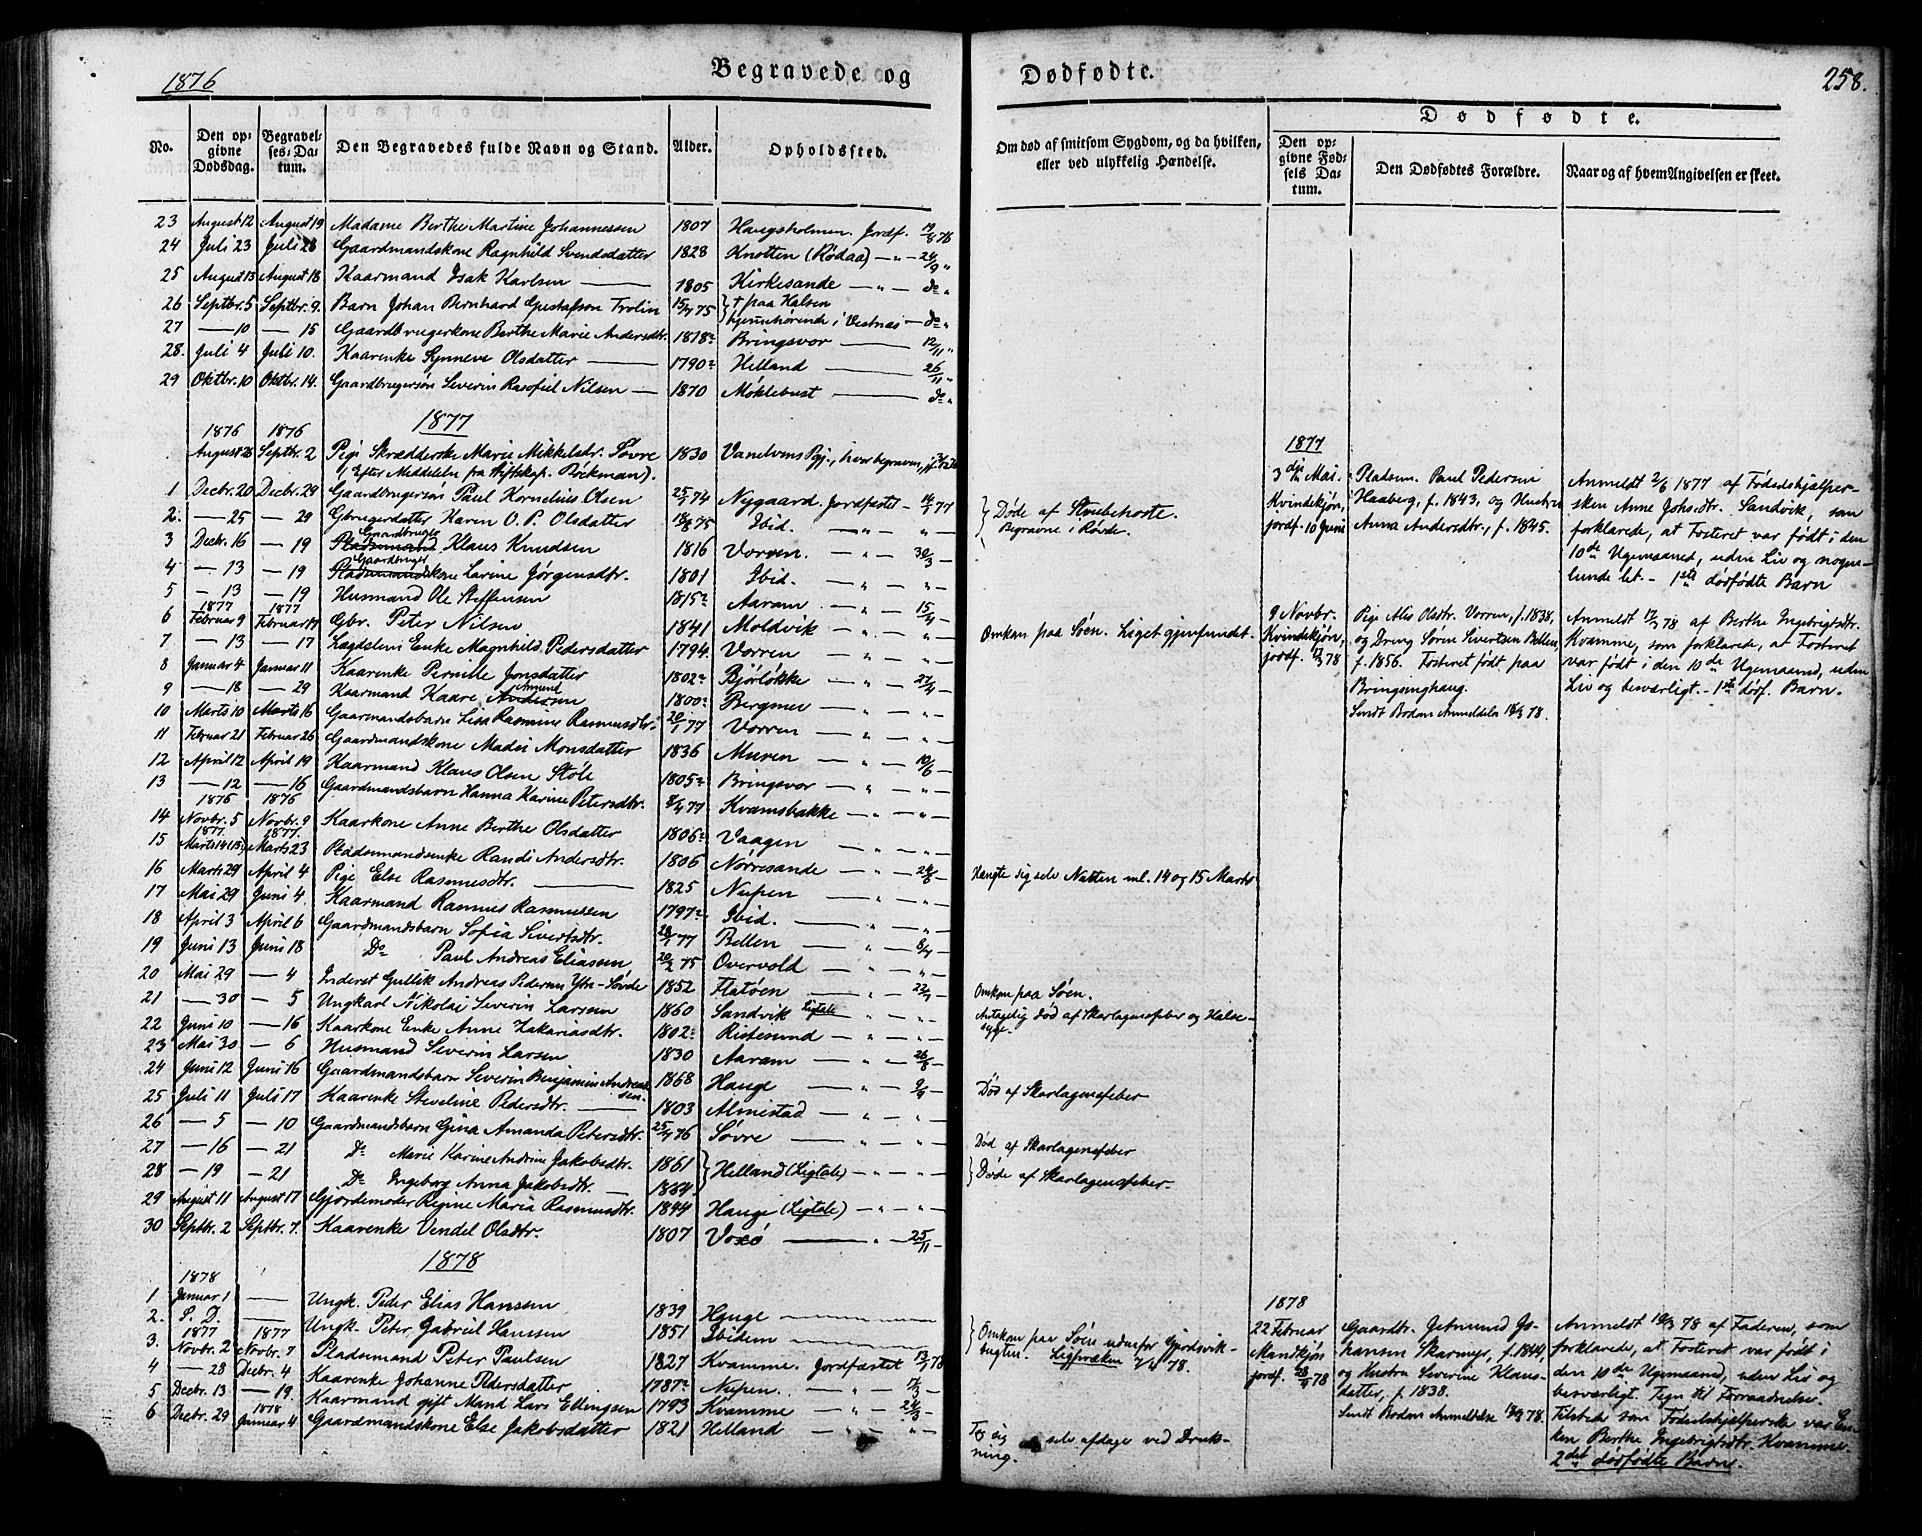 1876
Begravede og
Dødfødte.
258.
No.
Den opgivne Dødsdag.
Begravelses-Datum.
Den Begravedes fulde Navn og Stand.
Alder.
Opholdssted.
Om død af smitsom Sygdom, og da hvilken,
eller ved ulykkelig Hændelse.
Dødfødte.
Den opgivne Fødsels Datum.
Den Dødfødtes Forældre.
Naar og af hvem Angivelsen er skeet.
23 August 12 August 19 Madame Berthe Martine Johannessen 1807 Haugsholmen Jordf. 19/8 76
24 Juli 23 Juli 28 Gaardmandskone Ragnhild Svendsdatter 1828 Knotten (Rødaa) — " — 24/9 "
25 August 13 August 18 Kaarmand Isak Karlsen 1805 Kirkesande — " — do "
26 Septbr. 5 Septbr. 9. Barn Johan Bernhard Gustafson Trolin 15/7 75 } † paa Halsen
27 — 10 — 15 Gaardbrugerkone Berthe Marie Andersdtr. 1818 hjemmehørende i Vestnæs — do "
28. Juli 4 Juli 10. Kaarenke Synneve Olsdatter 1790 Bringsvor 12/11 "
29 Oktbr. 10 Oktbr. 14. Gaardbrugersøn Severin Rasofiel Nilsen 1870 Helland 26/11 "
Møklebust do "
1877
1876 1876
August 26 Septbr. 2 Pige Skrædderske Marie Mikkelsdr. Søvre 1830 Vanelvens Pgj., hvor begraven,
(Efter Meddelelse fra Stiftskap. Böckman).
1 Decbr. 20 Decbr. 29 Gaardbrugersøn Paul Kornelius Olsen 25/1 74 Nygaard Jordfæstet 14/1 77
2. — 25 — 29 Gbrugerdatter Karen O. P. Olsdatter 75 Ibid. — " — " —
} Døde af Strubehoste.
Begravne i Rovde.
3 Decbr. 16 — 19 Gaardbruger Klaus Knudsen 1816 Vorren. — " — 30/3 —
4 — 13 — 19 Gaardbrugerkone Larine Jørgensdtr. 1801 Ibid. — " — " —
5 — 13 — 19 Husmand Ole Steffensen 1815 Aaram — " — 15/4 —
1877 1877
6 Februar 9 Februar 17 Gbr. Peter Nilsen 1841 Moldvik — " — " — Omkom paa Søen. Liget gjenfundet.
7 — 13 — 17 Lægdslem Enke Magnhild Pedersdatter 1794 Vorren — " — " —
8 Januar 4 Januar 11 Kaarenke Pernille Jonsdatter 1802 Bjørløkke — " — 22/4 —
9 — 18 — 29 Kaarmand Kaare Amund Andersen 1800 Bergmer — " — " —
10 Marts 10 Marts 16 Gaarmandsbarn Lisa Rasmine Rasmusdtr. 20/1 77 Vorren — " — " —
11 Februar 21 Februar 26 Gaardmandskone Madei Monsdatter 1836 Muren — " — 10/6 —
12 April 12 April 19 Kaarmand Klaus Olsen Støle 1805 Bringsvor — " — " —
13 — 12 — 16 Gaardmandsbarn Hanna Karine Petersdtr. 77 Kvamsbakke — " — " —
1876 1876
14 Novbr. 5 Novbr. 9 Kaarkone Anne Berthe Olsdatter 1806 Vaagen — " — " —
1877 1877
15 Marts 14(15) Marts 23 Pladsemandsenke Randi Andersdtr. 1806 Nørresande — " — 24/6 — Hengte sig selv Natten ml. 14 og 15 Marts
16 Marts 29 April 4 Pige Else Rasmusdtr. 1825 Nupen — " — " —
17 Mai 29 Juni 4 Kaarmand Rasmus Rasmussen 1797 Ibid. — " — " —
18 April 3 April 6 Gaardmandsbarn Sofia Sivertsdtr. 77 Bellen — " — 8/7 —
19 Juni 13 Juni 18 Do Paul Andreas Eliassen 20/2 75 Overvold — " — " —
20 Mai 29 — 4 Inderst Gullik Andreas Pedersen Ytre-Søvde 1852 Flatøen — " — 22/7 — Omkom paa Søen.
21 — 30 — 5 Ungkarl Nikolai Severin Larssen 1860 Sandvik Ligtale — " — " — Antagelig død af Skarlagensfeber og Halse-
syge.
22 Juni 10 — 16 Kaarkone Enke Anne Zakariasdtr. 1802 Ristesund — " — " —
23 Mai 30 — 6 Husmand Severin Larsen 1830 Aaram — " — 26/8 —
24 Juni 12 Juni 16 Gaardmandsbarn Severin Benjamin Andreas-
sen. 1868 Hauge — " — 9/9 — Død af Skarlagensfeber
25 Juli 11 Juli 17 Kaarenke Steveline Pedersdtr. 1803 Almestad — " — " —
26 — 5 — 10 Gaardmandsbarn Gina Amanda Petersdtr. 25/7 76 Søvre — " — " — Død af Skarlagensfeber
27 — 16 — 21 Do Marie Karine Andrine Jakobsdtr. 1861 } Helland (Ligtale) — " — " — } Døde af Skarlagensfeber.
28 — 19 — 21 Do Ingeborg Anna Jakobsdtr. 1864
29 August 11 August 17 Gjordemoder Regine Maria Rasmusdtr. 1844 Hauge (Ligtale) — " — " —
30 Septbr. 2 Septbr. 7. Kaarenke Vendel Olsdtr. 1807 Voxø — " — 25/11 —
1878
1878
1 Januar 1 — Ungk. Peder Elias Hanssen 1839 Hauge
2. S. D. — Ungk. Peter Gabriel Hanssen 1851 Ibidem
} Omkom paa Søen udenfor Gjordsvik-
bugten. Ligsvækin 78.
1877 1877
3. Novbr. 2 Novbr. 7 Pladsemand Peter Paulsen 1827 Kvamme. Jordfæstet 13/1 78
4 — 28 Decbr. 4 Kaarenke Johanne Pedersdatter 1787 Nupen. — " — 17/3 —
5 Decbr. 13 — 19 Kaarmand gift Mand Lars Ellingsen 1793 Kvamme — " — 24/3 —
1878
6 Decbr. 29 Januar 4 Gaardmandskone Else Jakobsdatter 1821 Helland — " — " — Tog sig selv afdage ved Druk-
ning.
1877
3die Mai.
Kvindekjøn,
jordf. 10 Juni
Pladsm. Paul Pedersen
Haaberg, f. 1843, og Hustru
Anna Andersdtr., f. 1845.
Anmeldt 2/6 1877 af Fødselshjælper-
sken Anne Johsdtr. Sandvik, som
forklarede, at Fosteret var født i den
10de Ugemaaned, uden Liv og nogen-
lunde let. — 1ste dødfødte Barn
9 Novbr.
Kvindekjøn,
jordf. 78
Pige Alis Olsdtr. Vorren, f. 1838,
og Dreng Søren Sivertsen Bellen,
f. 1856. Fosteret født paa
Bringsinghaug.
Sendt Bodom Anmeldelse 78.
Anmeldt 78 af Berthe Ingebrigtsdtr.
Kvamme, som forklarede, at Fosteret
var født i den 10de Ugemaaned, uden
Liv og besværligt. — 1ste dødf. Barn.
1878
22 Februar
Mandkjøn
jordf. 78
Gaardbr. Jetmund Jo-
hansen Skarmyr, f. 1844,
og Hustru Severine Klaus-
datter, f. 1838.
Sendt Bodom Anmeldelse 78.
Anmeldt 78 af Faderen, som
forklarede, at Fosteret var født i
den 10de Ugemaaned, uden Liv og
besværligt. Tegn til Forraadnelse.
Tilstede som Fødselshjelperske var En-
ken Berthe Ingebrigtsdtr. Kvamme.
2det dødfødte Barn.